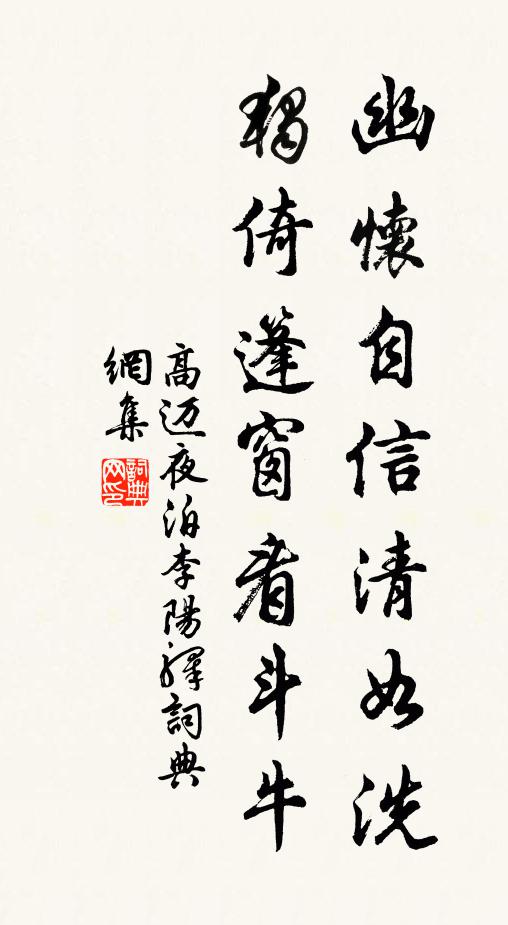 幽懷自信清如洗
獨倚篷窗看斗牛
高迈夜泊李陽驛詞典
網集
詞典网印